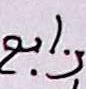 رابع